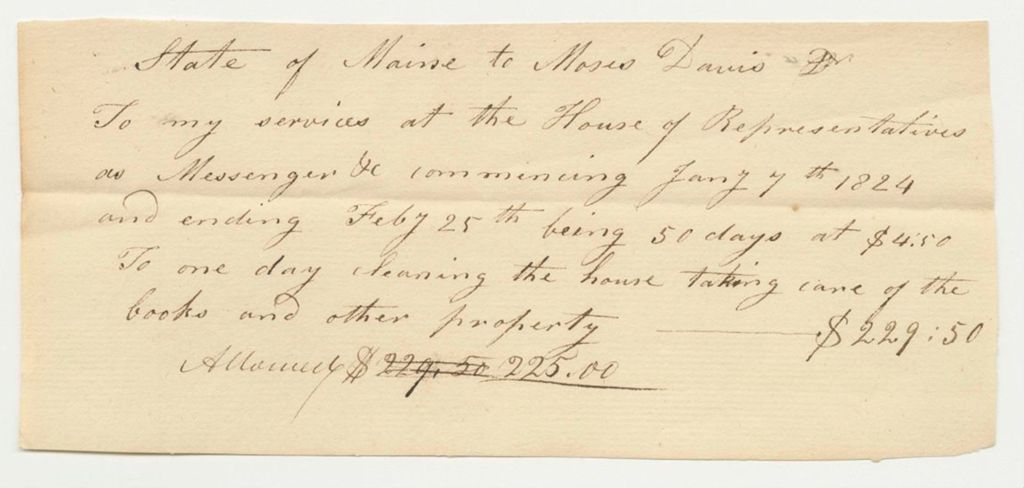 State of Maine to Moses Davis Dr
To my services at the House of Representatives
as Messenger &c commencing Jany 7th 1824
and ending Feby 25th being 50 days at $4:50
To one day cleaning the house taking care of the
books and other property $229:50
Allowed $ 229,50 225.00